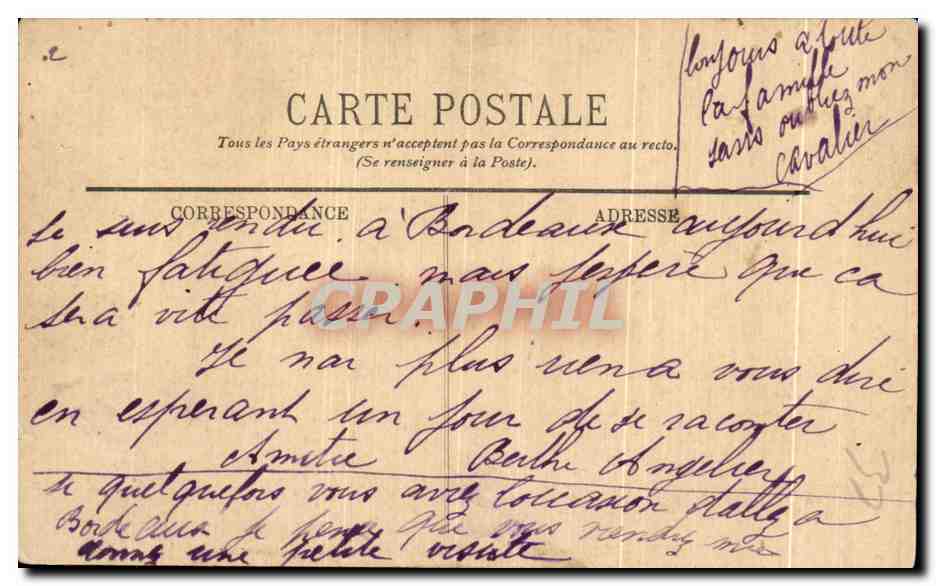 2
CARTE POSTALE
Tous les Pays étrangers n'acceptent pas la Correspondance au recto.
(Se renseigner à la Poste).
CORRESPONDANCE
ADRESSE
toujours a toute
la famille
sans oubliez mon
cavalier
Je suis rendu à Bordeaux aujourd'hui
bien fatiguee mais j'espere que ca
sera vite passer.
Je nai plus rien a vous dire
en esperant un jour de se raconter
Amitie Berthe Angelier
si quelquefois vous avez l'occasion d'allez a
Bordeaux je pense que vous viendrez me
donnez une petite visiste
CPAPHIL